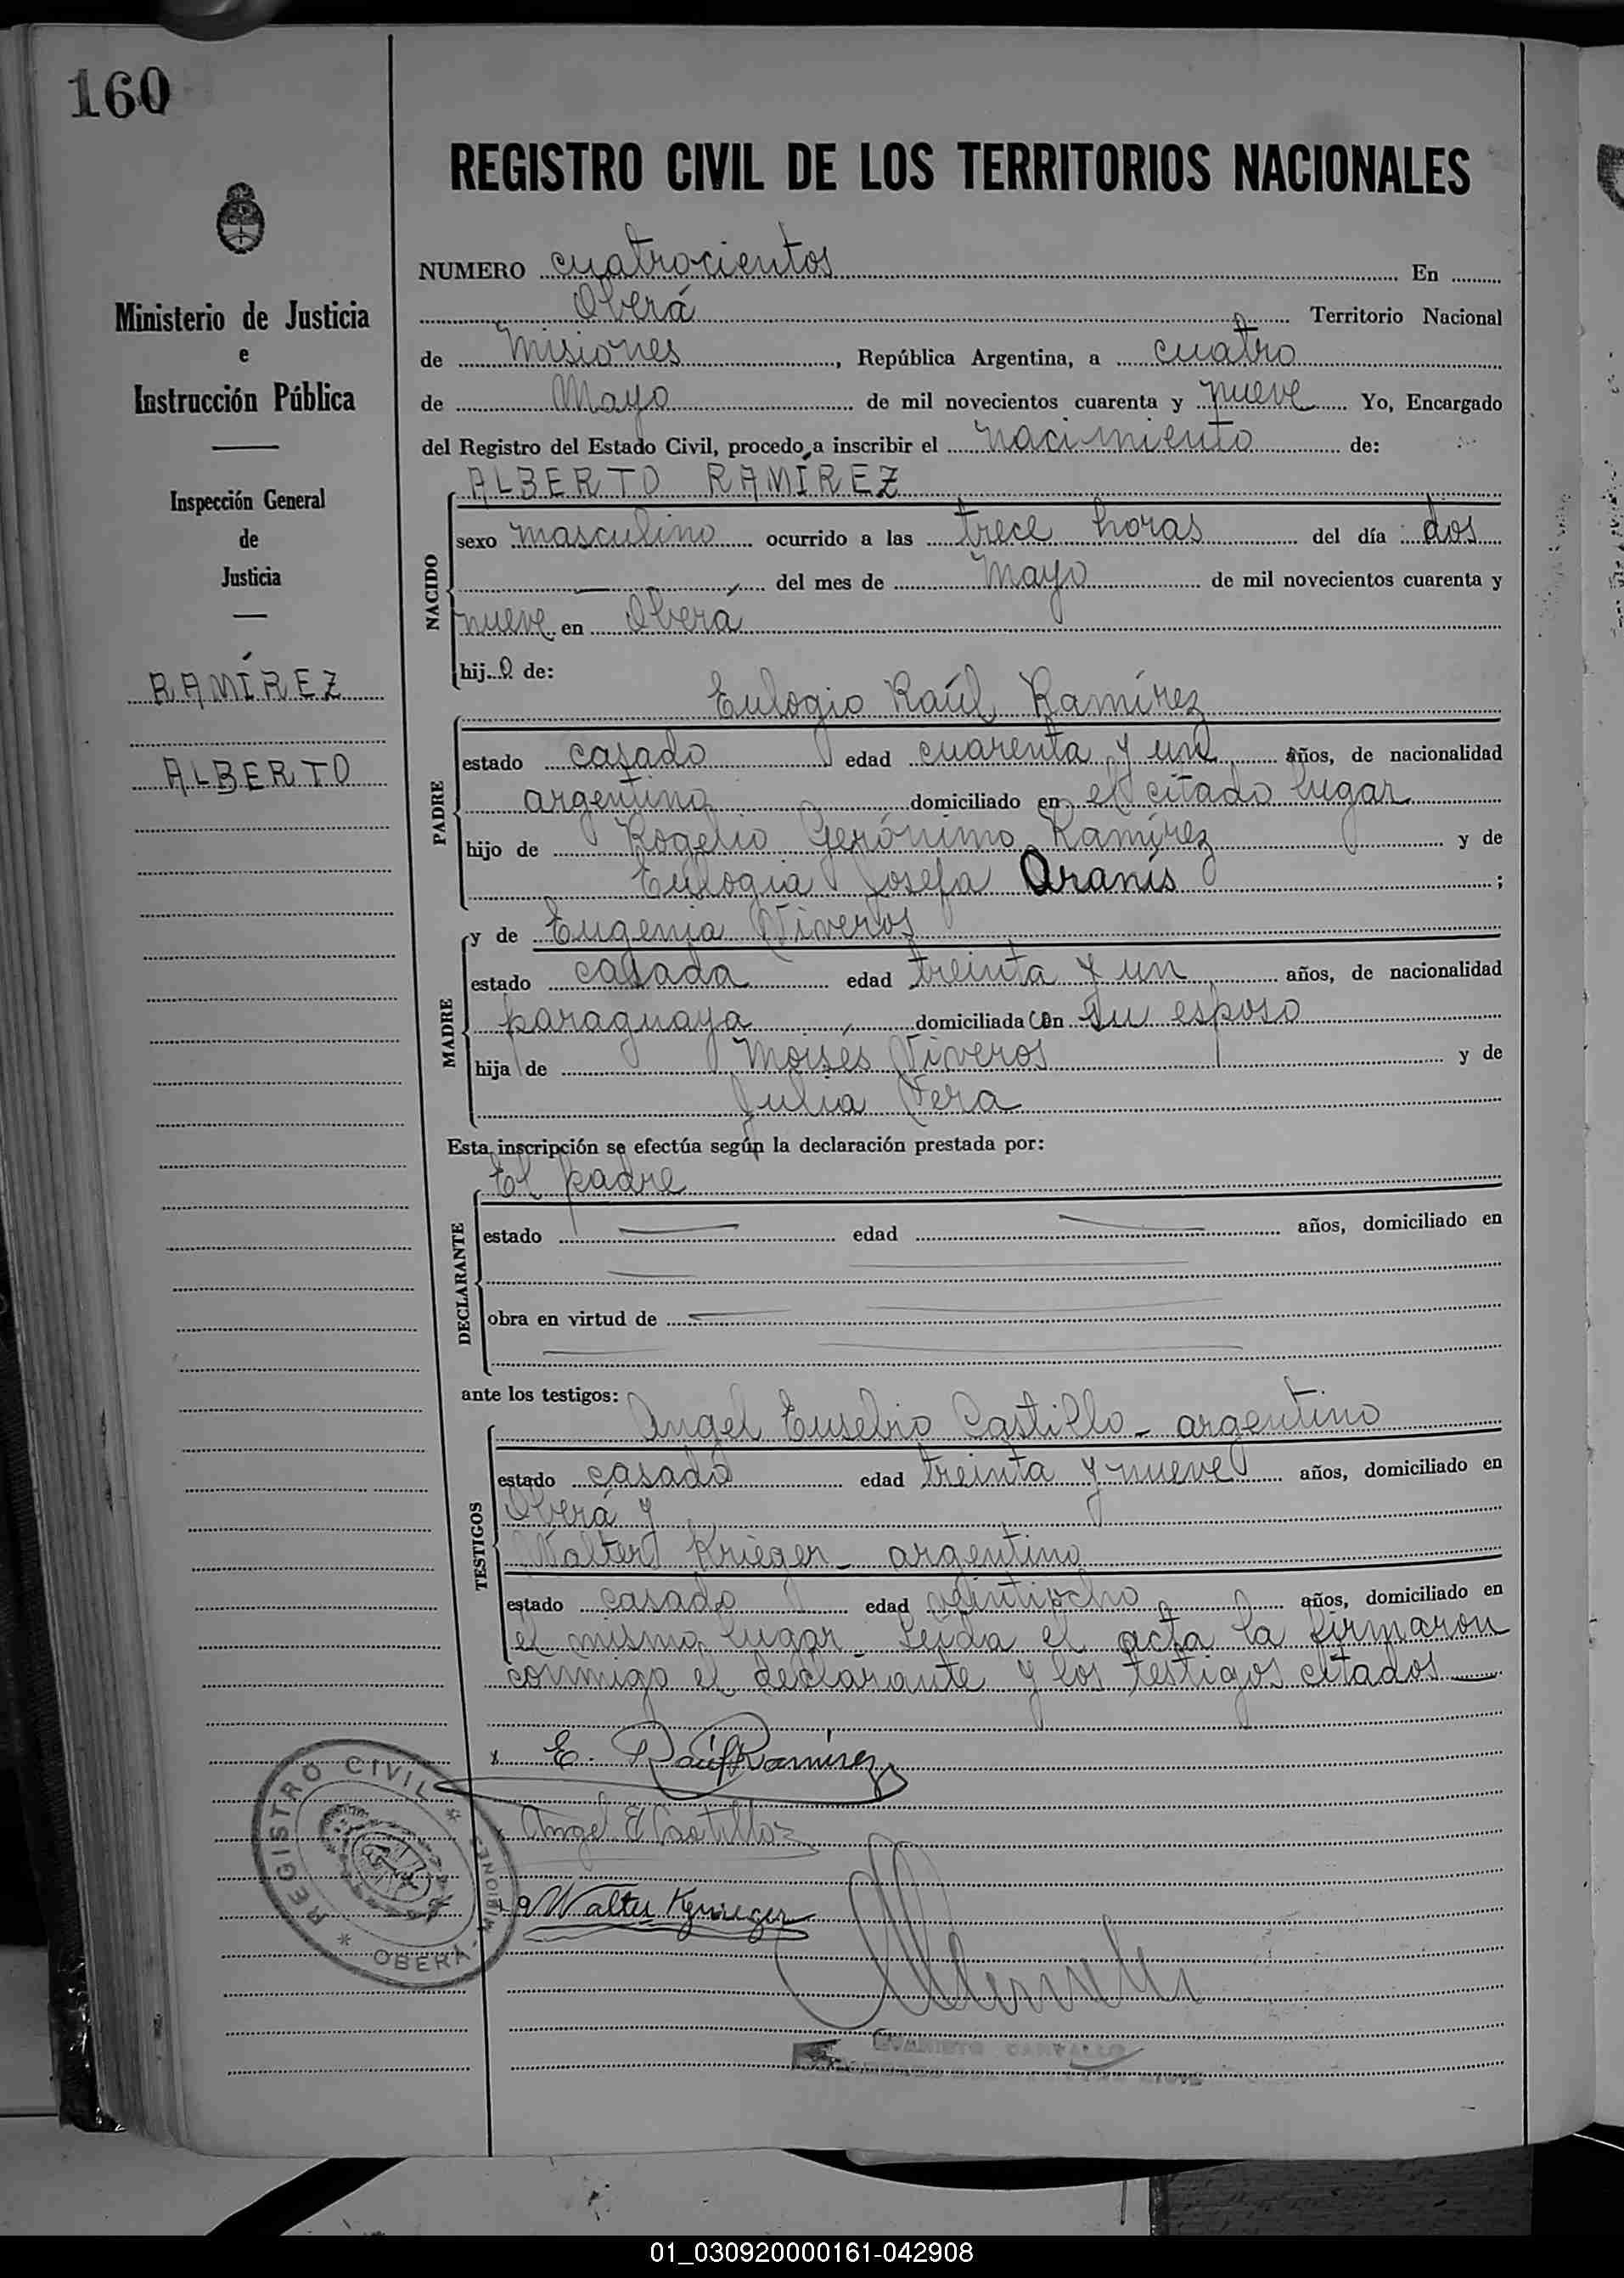 160
REGISTRO CIVIL DE LOS TERRITORIOS NACIONALES
Ministerio de Justicia
e
Instrucción Pública
Inspección General
de
Justicia
RAMÍREZ
ALBERTO
NUMERO cuatrocientos En
Oberá Territorio Nacional
de Misiones, República Argentina, a cuatro
de Mayo de mil novecientos cuarenta y nueve Yo, Encargado
del Registro del Estado Civil, procedo a inscribir el nacimiento de:
NACIDO
ALBERTO RAMÍREZ
sexo masculino ocurrido a las trece horas del día dos
del mes de Mayo de mil novecientos cuarenta y
nueve en Oberá
hijo de:
PADRE
Eulogio Raúl Ramírez
estado casado edad cuarenta y un años, de nacionalidad
argentino domiciliado en el citado lugar
hijo de Rogelio Gerónimo Ramírez y de
Eulogia Josefa Aranis ;
MADRE
y de Eugenia Viveros
estado casada edad treinta y un años, de nacionalidad
paraguaya domiciliada Con su esposo
hija de Moisés Viveros y de
Julia Vera
Esta inscripción se efectúa según la declaración prestada por:
DECLARANTE
El padre
estado edad años, domiciliado en
obra en virtud de
ante los testigos:
TESTIGOS
Angel Eusebio Castillo - argentino
estado casado edad treinta y nueve años, domiciliado en
Oberá y
Walter Krieger - argentino
estado casado edad veintiocho años, domiciliado en
el mismo lugar. Leída el acta la firmaron
conmigo el declarante y los testigos citados
x E. Raúl Ramírez
Angel E Castillo
Walter Krieger
REGISTRO CIVIL * OBERÁ - MISIONES *
EVARISTO CARVALLO
01_030920000161-042908